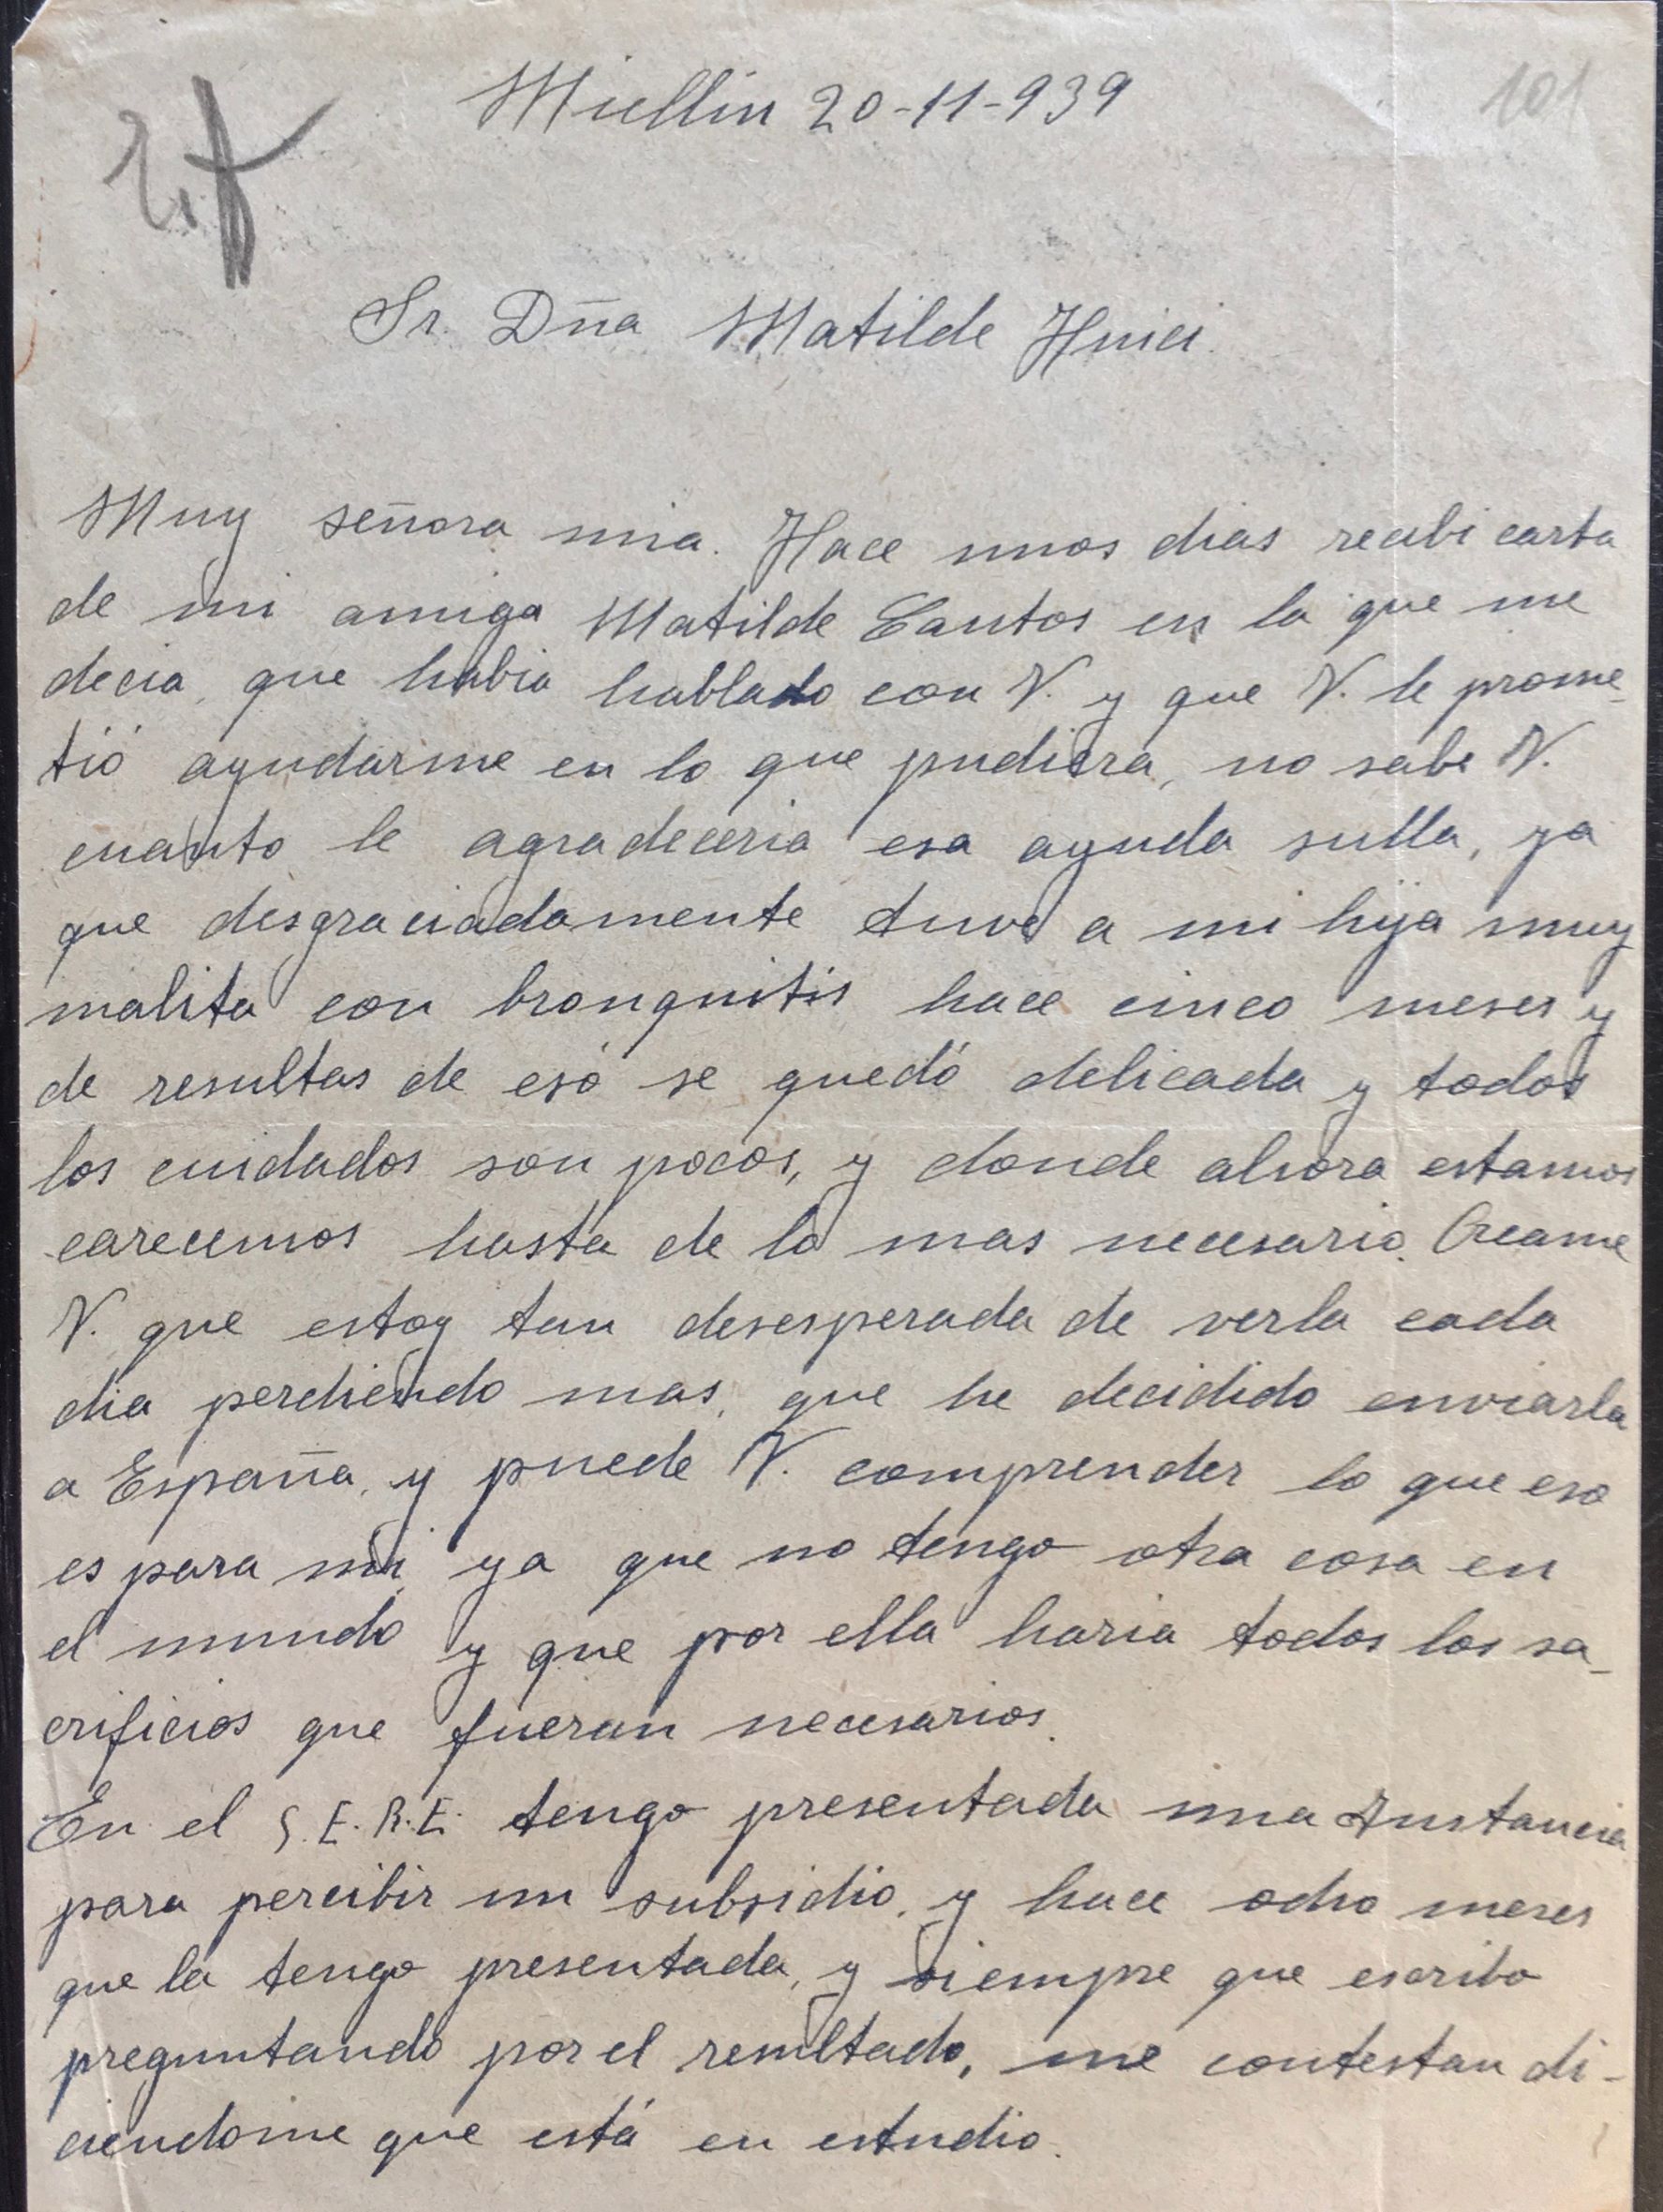 Miellin 20-11-939
101
Sr. Dña Matilde Huici.
Muy señora mia. Hace unos dias recibi carta
de mi amiga Matilde Cantos en la que me
decia, que habia hablado con V. y que V. le prome-
tió ayudarme en lo que pudiera, no sabe V.
cuanto le agradeceria esa ayuda sulla, ya
que desgraciadamente tuve a mi hija muy
malita con bronquitis hace cinco meses y
de resultas de eso se quedó delicada y todos
los cuidados son pocos, y donde ahora estamos
carecemos hasta de lo mas necesario. Creame
V. que estoy tan desesperada de verla cada
dia perdiendo mas, que he decidido enviarla
a España, y puede V. comprender lo que eso
es para mi, ya que no tengo otra cosa en
el mundo y que por ella haria todos los sa-
crificios que fueran necesarios.
En el S.E.R.E. tengo presentada una Instancia
para percibir un subsidio, y hace ocho meses
que la tengo presentada, y siempre que escribo
preguntando por el resultado, me contestan di-
ciendome que está en estudio.